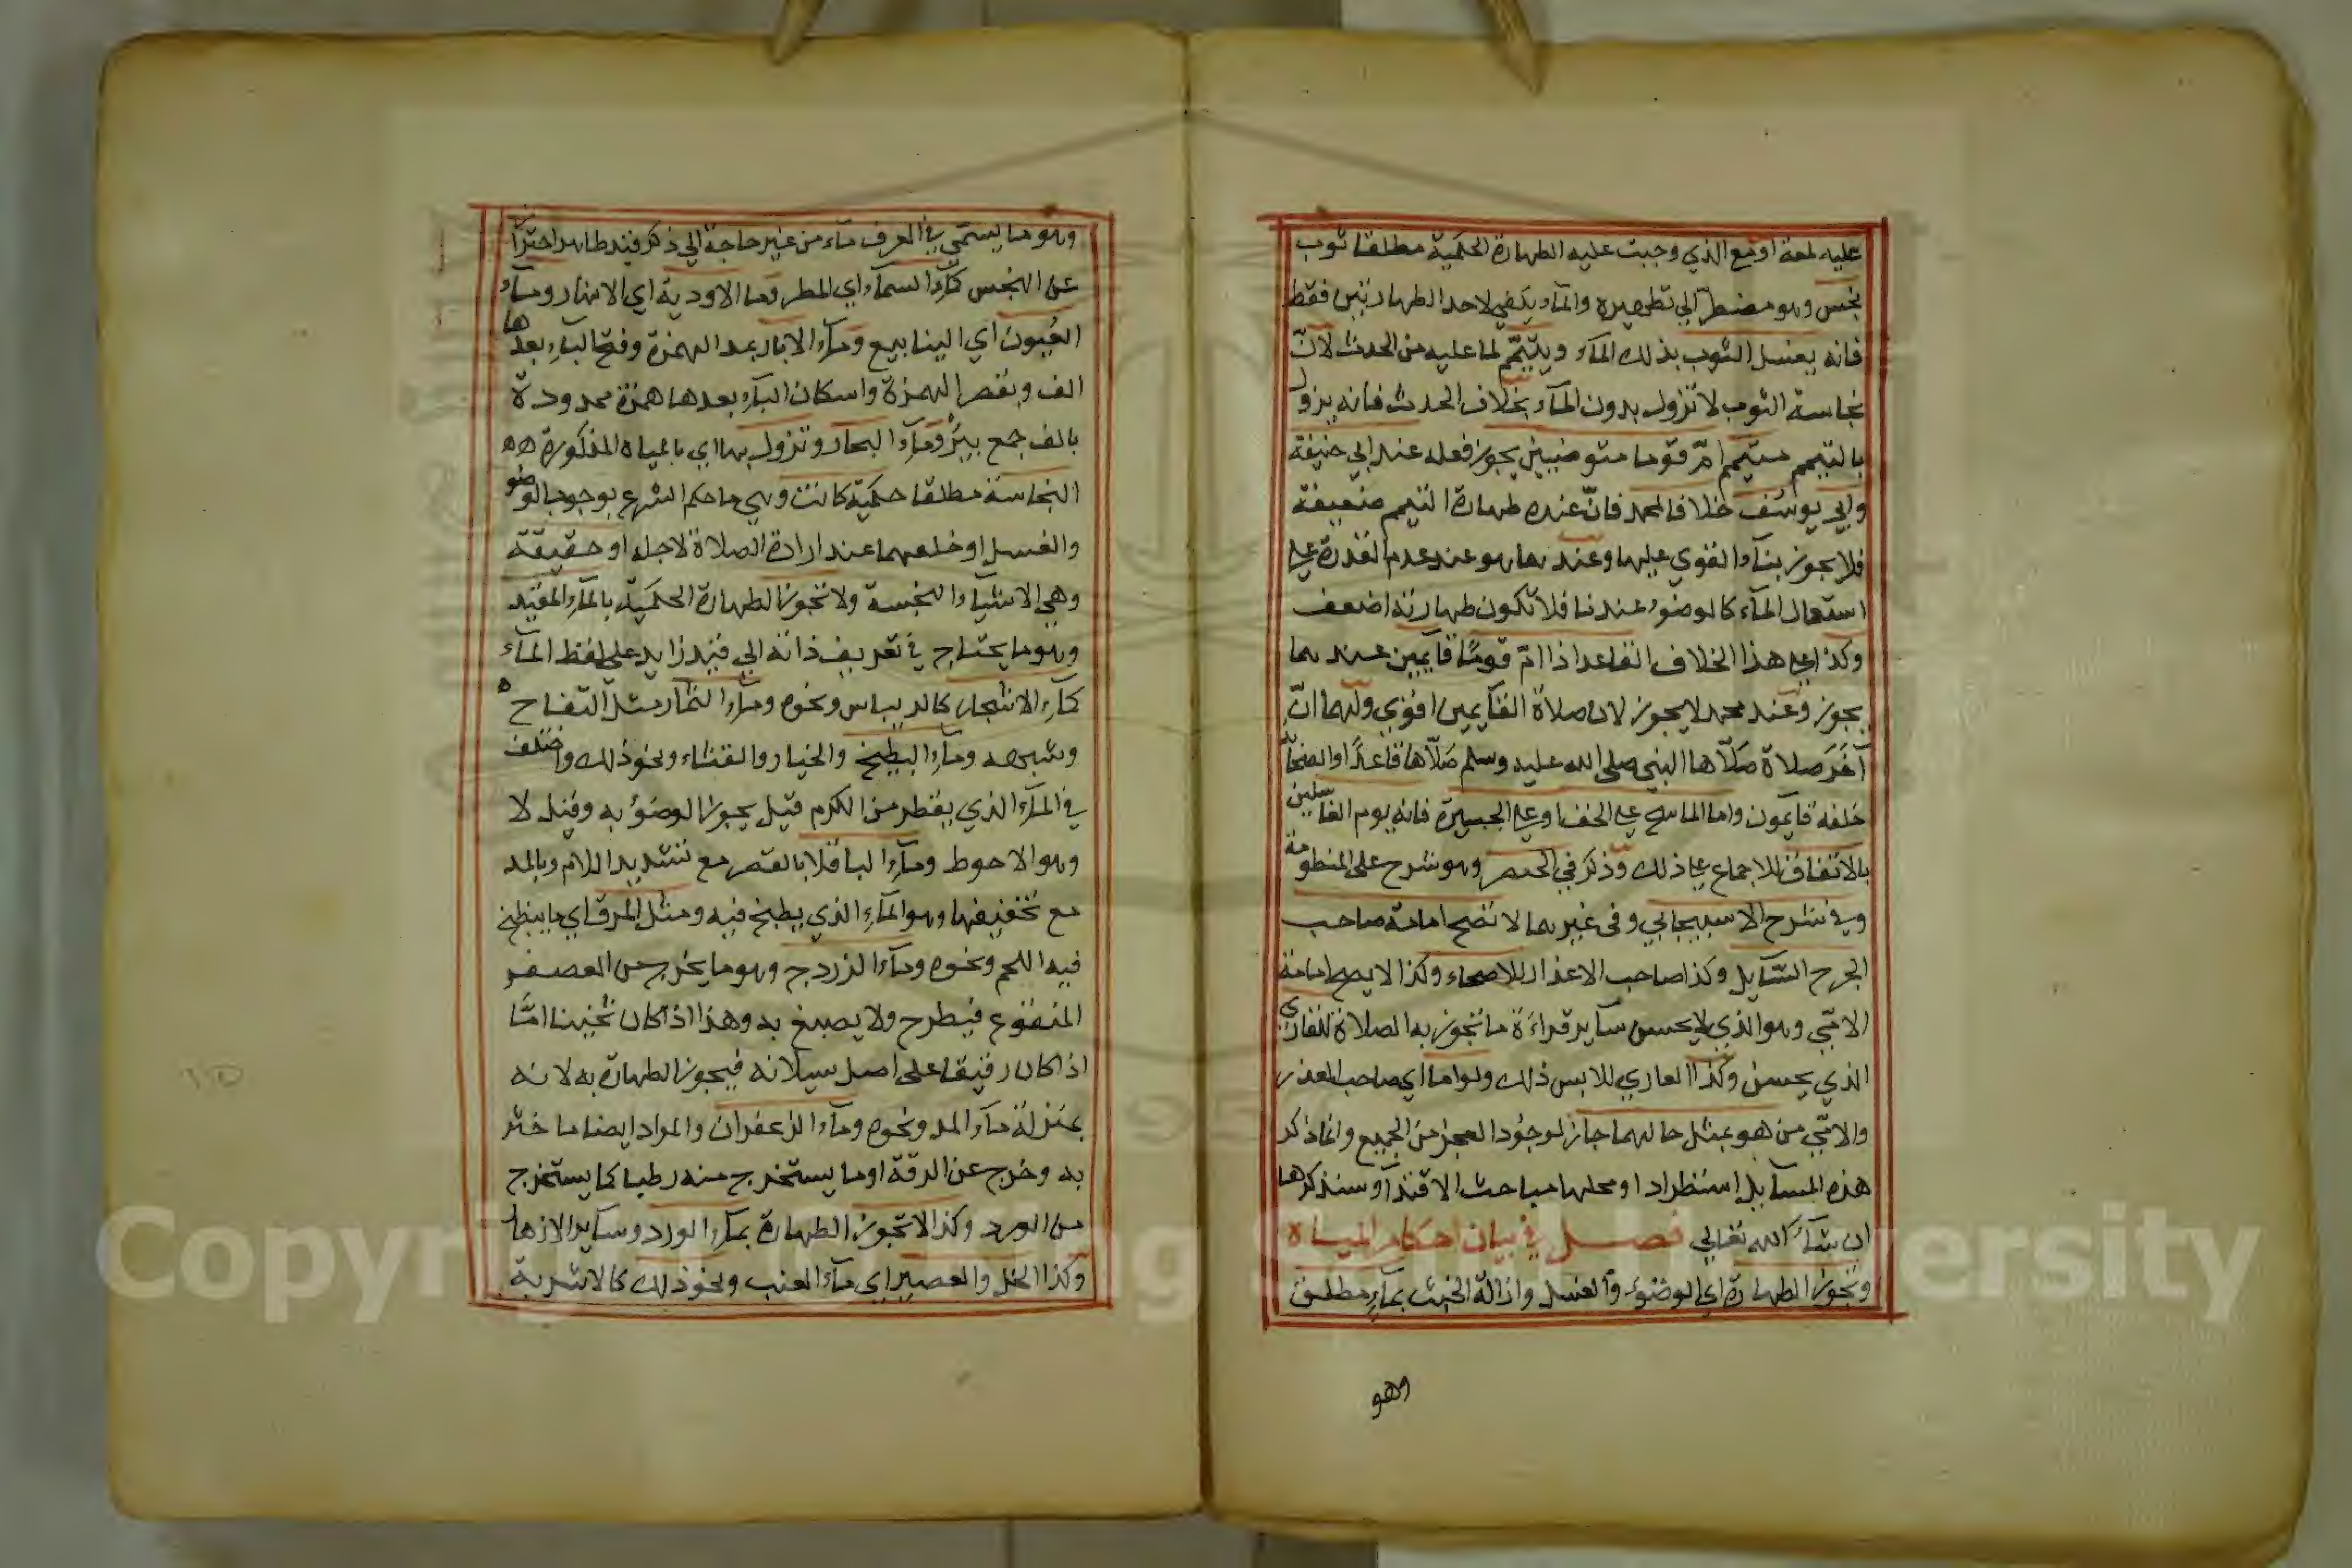 عليه لمعة او مع الذي وجبت عليه الطهارة الحكمية مطلقا ثوب
نجس وهو مضطر الي تطهيره والمآء يكفي لاحد الطهارتين فقط
فانه يغسل الثوب بذلك المآء ويتيمّم لما عليه من الحدث لانّ
نجاسة الثوب لا تزول بدون المآء بخلاف الحدث فانه يزول
بالتيمم متيمم امّ قوما متوضيين يجوز فعله عند ابي حنيفة
وابي يوسف خلافا لمحمد فانّ عنده طهارة التيمم ضعيفة
فلا يجوز بنآء القوي عليها وعندهما هو عند عدم القدرة علي
استعمال المآء كالوضوء عندنا فلا تكون طهارته اضعف
وكذا علي هذا الخلاف القاعد اذا امّ قومًا قايمين عندهما
يجوز وعند محمد لا يجوز لان صلاة القآيمين اقوي ولهما انّ
آخر صلاة صلّاها النبي صلى الله عليه وسلم صلّاها قاعدًا والصحابة
خلفه قايمون واما الماسح علي الخف او علي الجبيرة فانه يوم الغاسلين
بالاتفاق للاجماع علي ذلك وذكر في الحصر وهو شرح على المنظومة
وفي شرح الاسبيجابي وفى غيرهما لا تصح امامة صاحب
الجرح السّآيل وكذا صاحب الاعذار للاصحاء وكذا لا يصح امامة
الامّي وهو الذي لا يحسن سآير قراءة ما تجوز به الصلاة للقاري
الذي يحسن وكذا العاري للابس ذلك ولو اما اي صاحب العذر
والامّي من هو بمثل حالهما جاز لوجود العجز من الجميع وانما ذكر
هذه المسآيل استطرادا ومحلها مباحث الاقتدآء وسنذكرها
ان شآء الله تعالي فصل في بيان احكام المياه
وتجوز الطهارة اي الوضوء والغسل وازالة الخبث بمآء مطلق
وهو
وهو ما يسمّي في العرف مآء من غير حاجة الي ذكر قيد طاهر احترازا
عن النجس كمآء السمآء اي المطر ومآ الاودية اي الانهار ومآء
العيون اي الينابيع ومآء الابار بمد الهمزة وفتح البآء بعدها
الف وبقصر الهمزة واسكان البآء بعدها همزة ممدودة
بالف جمع بير ومآء البحار وتزول بها اي بالمياه المذكورة
النجاسة مطلقا حكمية كانت وهي ما حكم الشرع بوجوب الوضو
والغسل او خلفهما عند ارادة الصلاة لاجله او حقيقة
وهي الاشيآء النجسة ولا تجوز الطهارة الحكمية بالمآء المقيد
وهو ما يحتاج في تعريف ذاته الي قيد زايد على لفظ المآء
كمآء الاشجار كالديباس ونحوه ومآء الثمار مثل التفاح
وشبهه ومآء البطيخ والخيار والقثاء ونحو ذلك واختلف
في المآء الذي يقطر من الكرم قيل يجوز الوضوء به وقيل لا
وهو الاحوط ومآء الباقلا بالقصر مع تشديد اللام وبالمد
مع تخفيفها وهو المآء الذي يطبخ فيه ومثل المرق اي ما ينطبخ
فيه اللحم ونحوه ومآء الزردج وهو ما يخرج من العصفر
المنقوع فيطرح ولا يصبغ به وهذا اذا كان ثخينا امّا
اذا كان رقيقا على اصل سيلانه فيجوز الطهارة به لانه
بمنزلة مآء المد ونحوه ومآء الزعفران والمراد ايضا ما خثر
به وخرج عن الرقة او ما يستخرج منه رطبا كما يستخرج
من الورد وكذا لا تجوز الطهارة بمآء الورد وسآير الازهار
وكذا الخل والعصير اي مآء العنب ونحو ذلك كالاشربة